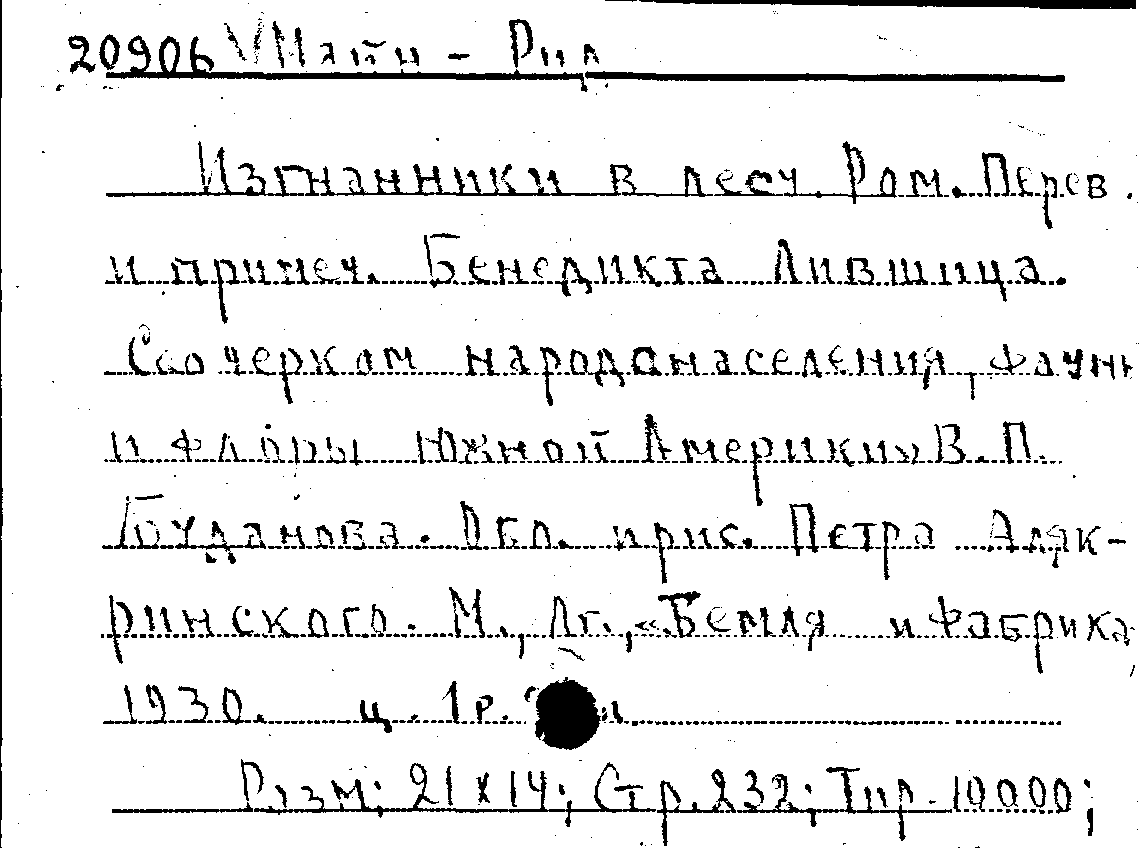 20906 Майн - Рид
Изгнанники в лесу. Ром. Перев.
и примеч. Бенедикта Лившица.
С очерком народонаселения, фауны
и флоры Южной Америки В. П.
Буданова. Обл. и рис. Петра Аляк-
ринского. М., Лг., «Земля и Фабрика
1930. ц. 1р.
Разм; 21 x 14; Стр. 232; Тир. 10000;